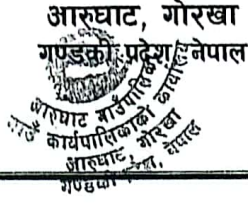 आरुघाट, गोरखा
गण्डकी प्रदेश, नेपाल
आरुघाट गाउँपालिका
गाउँ कार्यपालिकाको कार्यालय
आरुघाट, गोरखा
गण्डकी प्रदेश, नेपाल